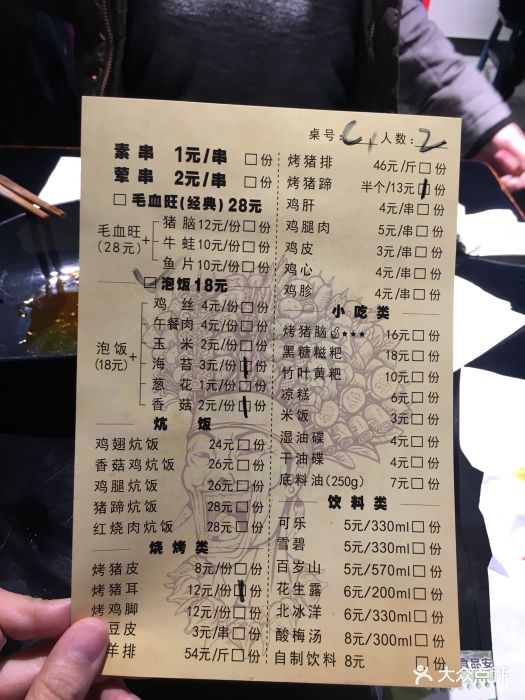 桌号: C1 人数: 2
素串 1元/串 □份
荤串 2元/串 □份
□ 毛血旺(经典) 28元
毛血旺(28元) +
猪脑 12元/份 □份
牛蛙 10元/份 □份
鱼片 10元/份 □份
□ 泡饭 18元
泡饭(18元) +
鸡丝 4元/份 □份
午餐肉 4元/份 □份
玉米 2元/份 □份
海苔 3元/份 □份
葱花 1元/份 □份
香菇 2元/份 □份
炕饭
鸡翅炕饭 24元 □份
香菇鸡炕饭 26元 □份
鸡腿炕饭 26元 □份
猪蹄炕饭 28元 □份
红烧肉炕饭 28元 □份
烧烤类
烤猪皮 8元/份 □份
烤猪耳 12元/份 □份
烤鸡脚 12元/份 □份
豆皮 3元/串 □份
羊排 54元/斤 □份
烤猪排 46元/斤 □份
烤猪蹄 半个/13元 □份
鸡肝 4元/串 □份
鸡腿肉 5元/串 □份
鸡皮 3元/串 □份
鸡心 4元/串 □份
鸡胗 4元/串 □份
小吃类
烤猪脑 ★★★ 16元 □份
黑糖糍粑 18元 □份
竹叶黄粑 10元 □份
凉糕 6元 □份
米饭 3元 □份
湿油碟 4元 □份
干油碟 4元 □份
底料油(250g) 7元 □份
饮料类
可乐 5元/330ml □份
雪碧 5元/330ml □份
百岁山 5元/570ml □份
花生露 6元/200ml □份
北冰洋 6元/330ml □份
酸梅汤 8元/300ml □份
自制饮料 8元 □份
食品安
大众点评